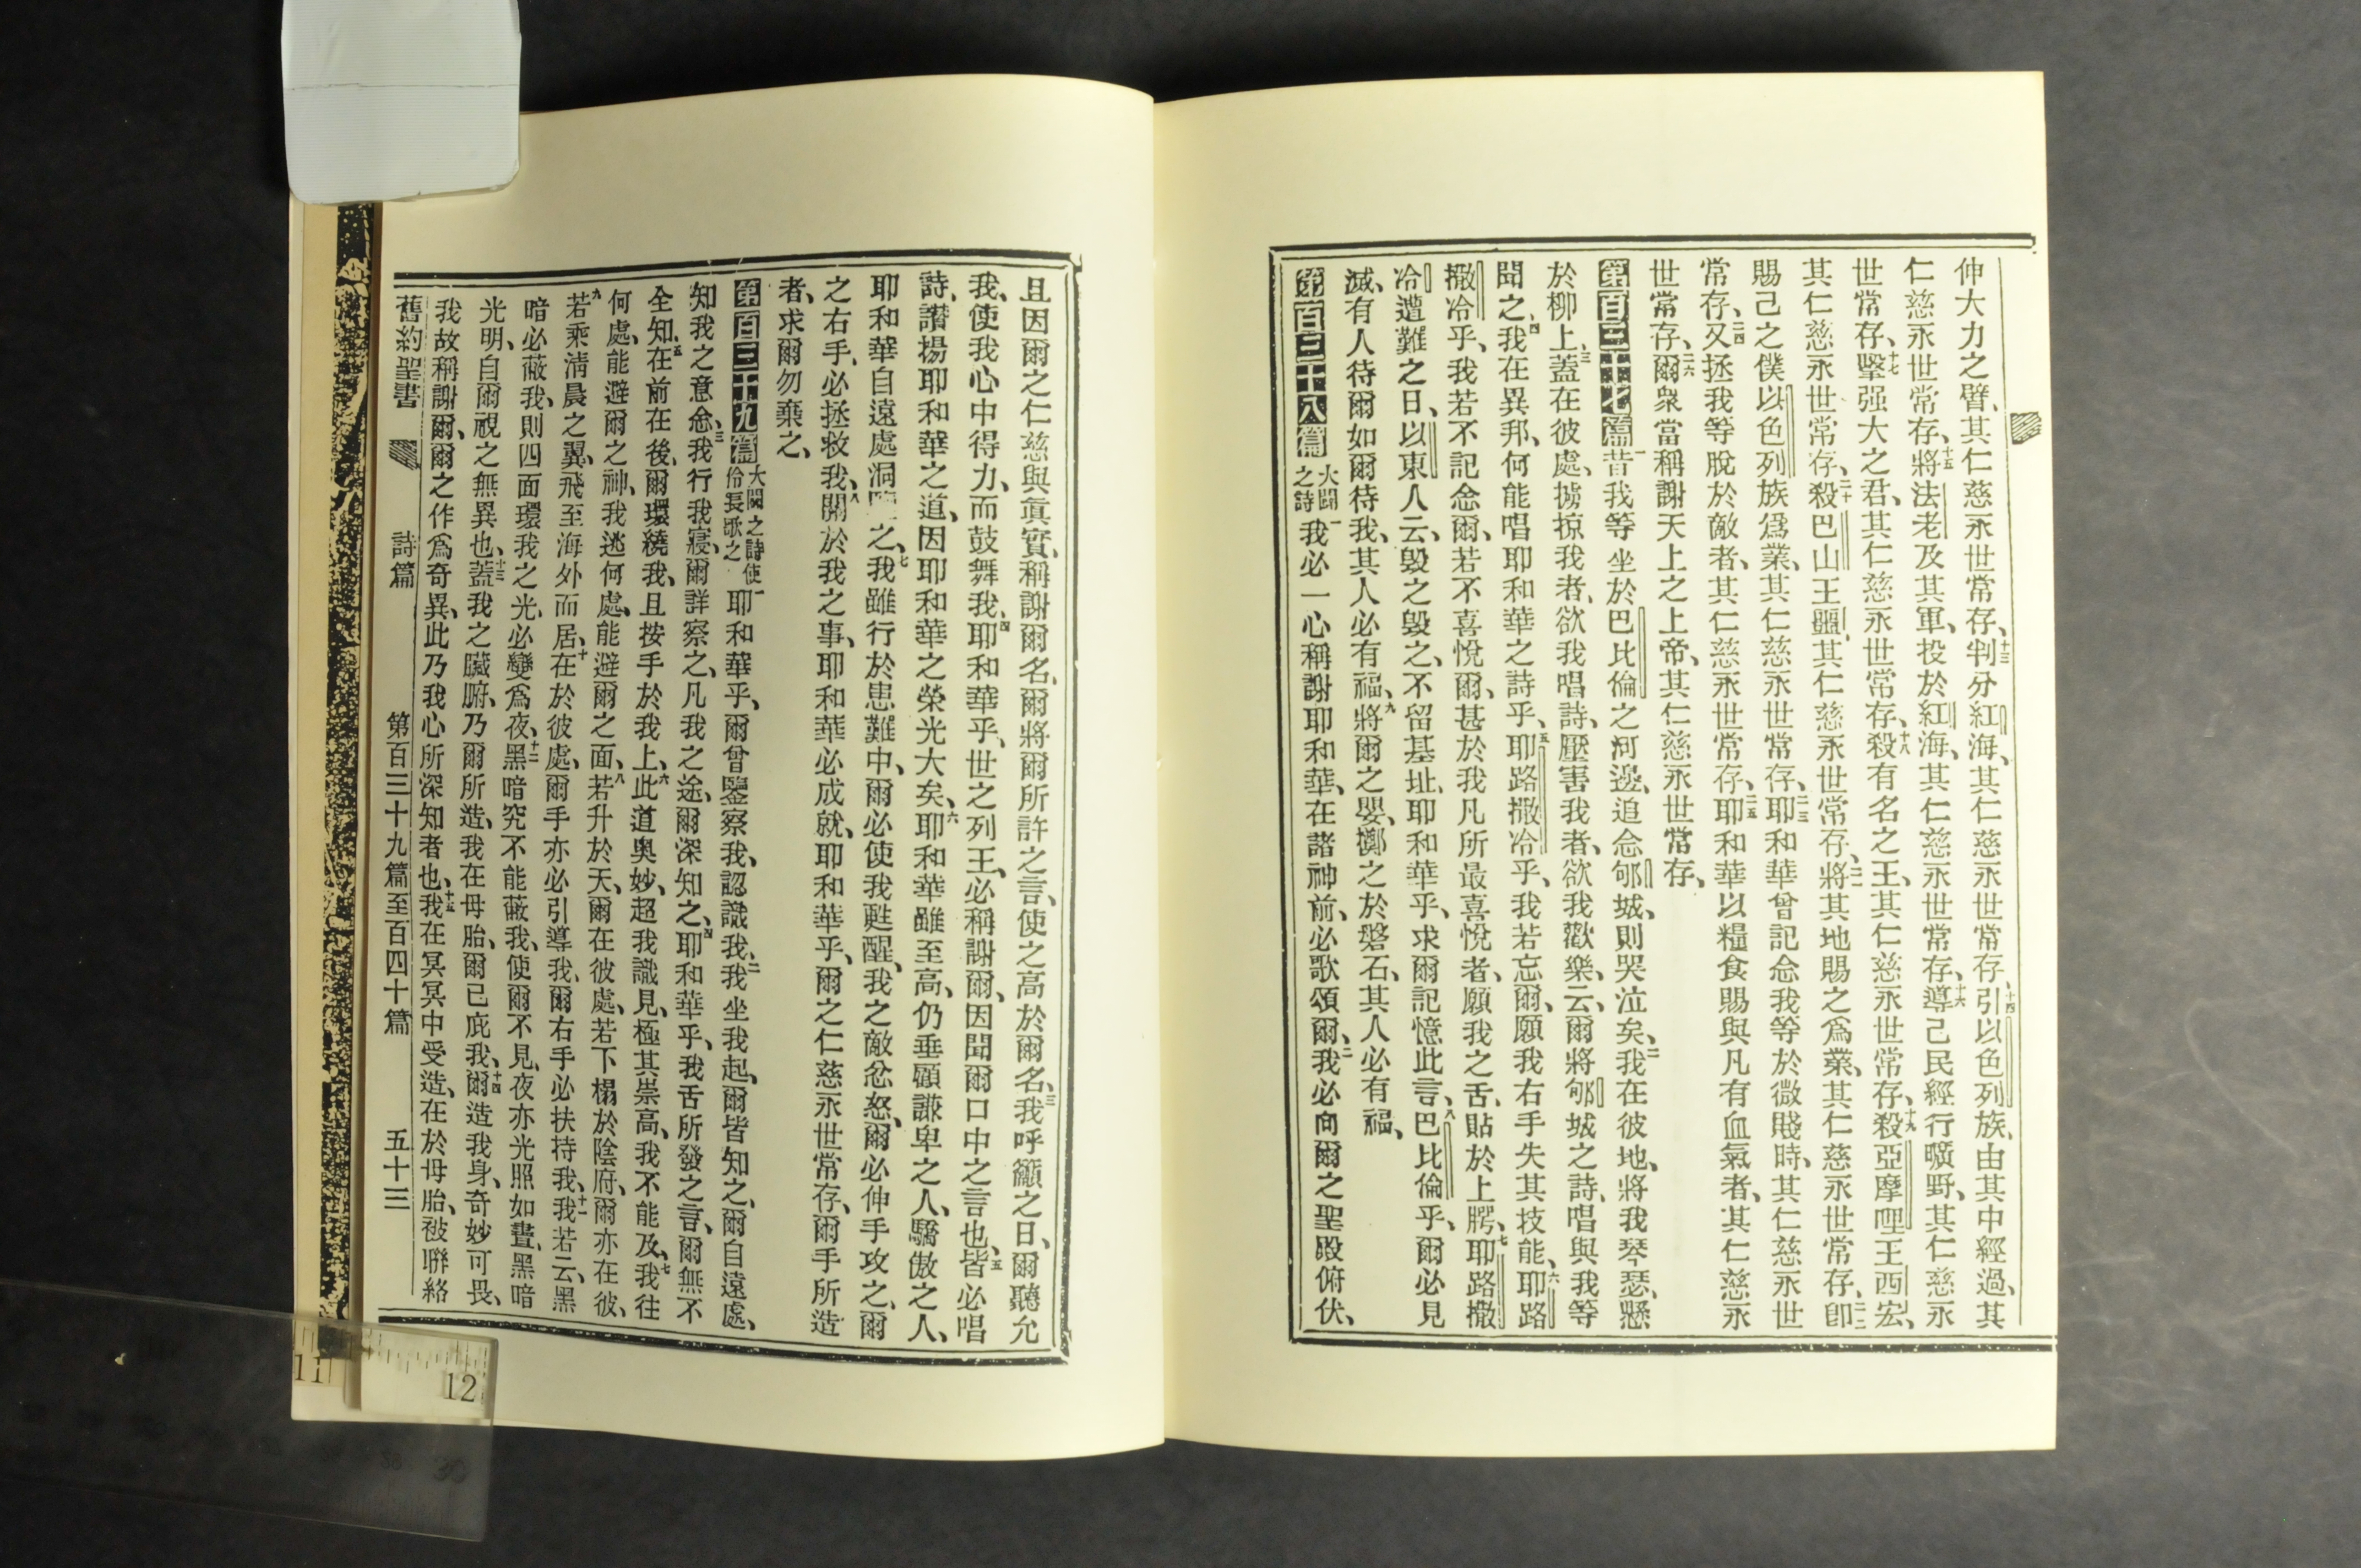 伸大力之臂、其仁慈永世常存、十三判分紅海、其仁慈永世常存、十四引以色列族、由其中經過、其
仁慈永世常存、十五將法老及其軍、投於紅海、其仁慈永世常存、十六導己民經行曠野、其仁慈永
世常存、十七擊强大之君、其仁慈永世常存、十八殺有名之王、其仁慈永世常存、十九殺亞摩哩王西宏、
其仁慈永世常存、二十殺巴山王噩、其仁慈永世常存、二一將其地賜之爲業、其仁慈永世常存、二二卽
賜己之僕以色列族爲業、其仁慈永世常存、二三耶和華曾記念我等於微賤時、其仁慈永世
常存、二四又拯我等脫於敵者、其仁慈永世常存、二五耶和華以糧食賜與凡有血氣者、其仁慈永
世常存、二六爾衆當稱謝天上之上帝、其仁慈永世常存、
第百三十七篇 一昔我等坐於巴比倫之河邊、追念郇城、則哭泣矣、二我在彼地、將我琴瑟、懸
於柳上、三蓋在彼處、擄掠我者、欲我唱詩、壓害我者、欲我歡樂、云、爾將郇城之詩、唱與我等
聞之、四我在異邦、何能唱耶和華之詩乎、五耶路撒冷乎、我若忘爾、願我右手失其技能、六耶路
撒冷乎、我若不記念爾、若不喜悅爾、甚於我凡所最喜悅者、願我之舌、貼於上腭、七耶路撒
冷遭難之日、以東人云、毀之毀之、不留基址、耶和華乎、求爾記憶此言、八巴比倫乎、爾必見
滅、有人待爾如爾待我、其人必有福、九將爾之嬰、擲之於磐石、其人必有福、
第百三十八篇 大闢之詩 一我必一心稱謝耶和華、在諸神前、必歌頌爾、二我必向爾之聖殿俯伏、
且因爾之仁慈與眞實、稱謝爾名、爾將爾所許之言、使之高於爾名、三我呼籲之日、爾聽允
我、使我心中得力、而鼓舞我、四耶和華乎、世之列王、必稱謝爾、因聞爾口中之言也、五皆必唱
詩、讚揚耶和華之道、因耶和華之榮光大矣、六耶和華雖至高、仍垂顧謙卑之人、驕傲之人、
耶和華自遠處洞之、七我雖行於患難中、爾必使我甦醒、我之敵忿怒、爾必伸手攻之、爾
之右手、必拯救我、八關於我之事、耶和華必成就、耶和華乎、爾之仁慈永世常存、爾手所造
者、求爾勿棄之、
第百三十九篇 大闢之詩使伶長歌之 一耶和華乎、爾曾鑒察我、認識我、二我坐我起、爾皆知之、爾自遠處、
知我之意念、三我行我寢、爾詳察之、凡我之途、爾深知之、四耶和華乎、我舌所發之言、爾無不
全知、五在前在後、爾環繞我、且按手於我上、六此道奥妙、超我識見、極其崇高、我不能及、七我往
何處、能避爾之神、我逃何處、能避爾之面、八若升於天、爾在彼處、若下榻於陰府、爾亦在彼、
九若乘淸晨之翼、飛至海外而居、十在於彼處、爾手亦必引導我、爾右手必扶持我、十一我若云、黑
暗必蔽我、則四面環我之光、必變爲夜、十二黑暗究不能蔽我、使爾不見、夜亦光照如晝、黑暗
光明、自爾視之無異也、十三蓋我之臟腑、乃爾所造、我在母胎、爾已庇我、十四爾造我身、奇妙可畏、
我故稱謝爾、爾之作爲奇異、此乃我心所深知者也、十五我在冥冥中受造、在於母胎、被聯絡
舊約聖書 詩篇 第百三十九篇至百四十篇 五十三
11
12